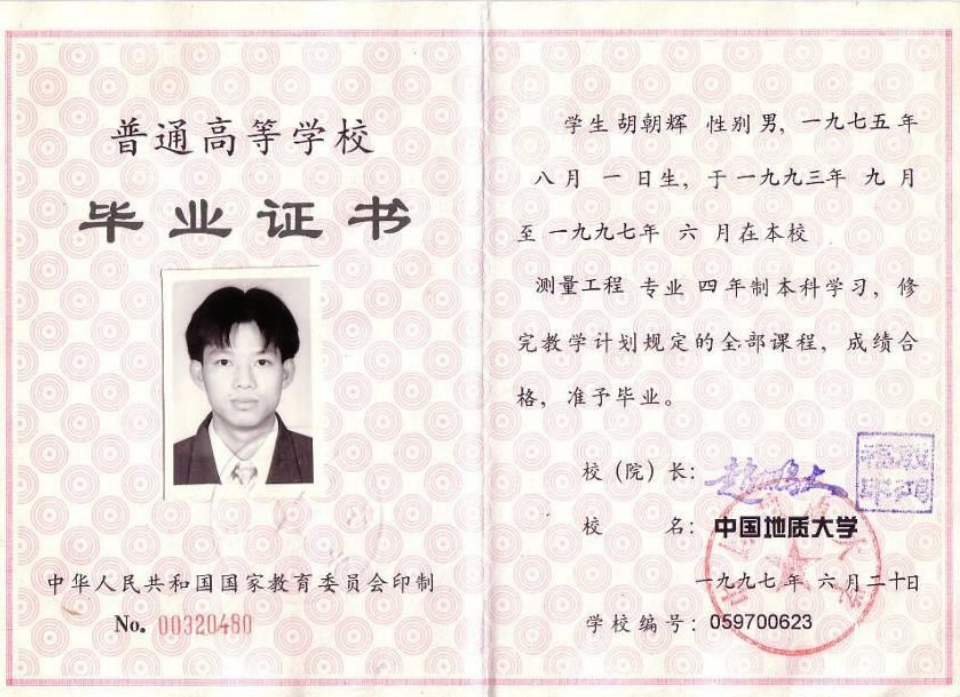 普通高等学校
毕业证书
中华人民共和国国家教育委员会印制
No. 00320480
学生 胡朝辉 性别 男，一九七五年
八月 一 日生，于一九九三年 九 月
至 一九九七年 六 月在本校
测量工程 专业 四年制本科学习，修
完教学计划规定的全部课程，成绩合
格，准予毕业。
校（院）长：赵鹏大
校 名：中国地质大学
一九九七年 六月二十日
学校编号：059700623